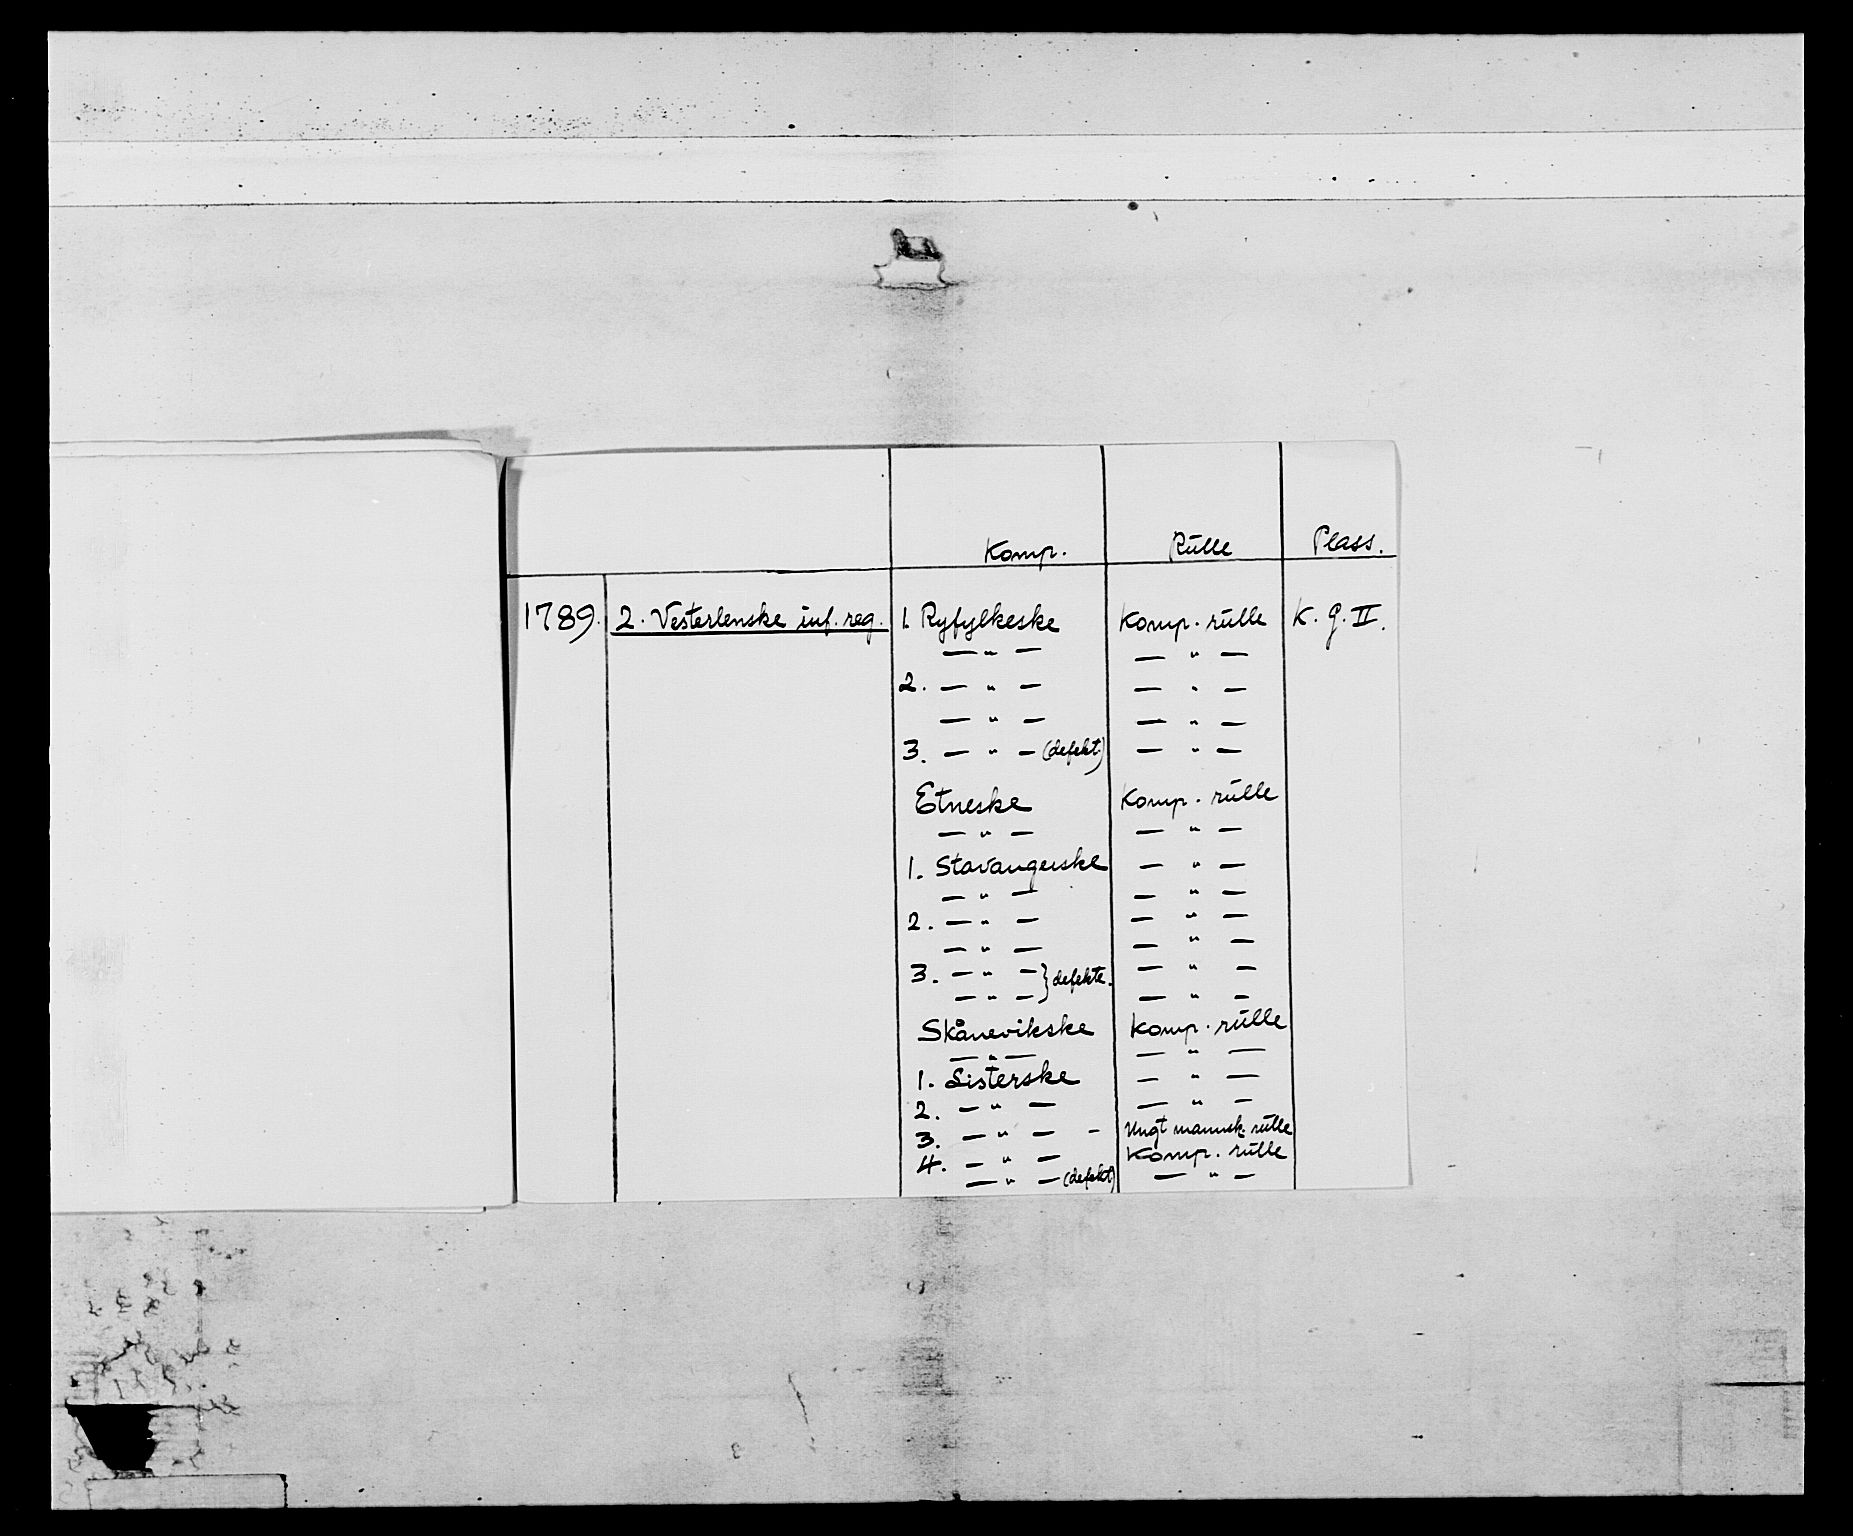 Komp. Rulle Plass.
1789. 2. Vesterlenske inf. reg. 1. Ryfylkeske Komp. rulle K. g. II.
— " — — " —
2. — " — — " —
— " — — " —
3. — " — (defekt) — " —
Etneske Komp. rulle
— " — — " —
1. Stavangerske — " —
— " — — " —
2. — " — — " —
— " — — " —
3. — " — } defekte. — " —
— " — — " —
Skånevikske Komp. rulle
— " — — " —
1. Listerske — " —
2. — " — — " —
3. — " — - Ungt mannsk. rulle
4. — " — Komp. rulle
— " — (defekt) — " —